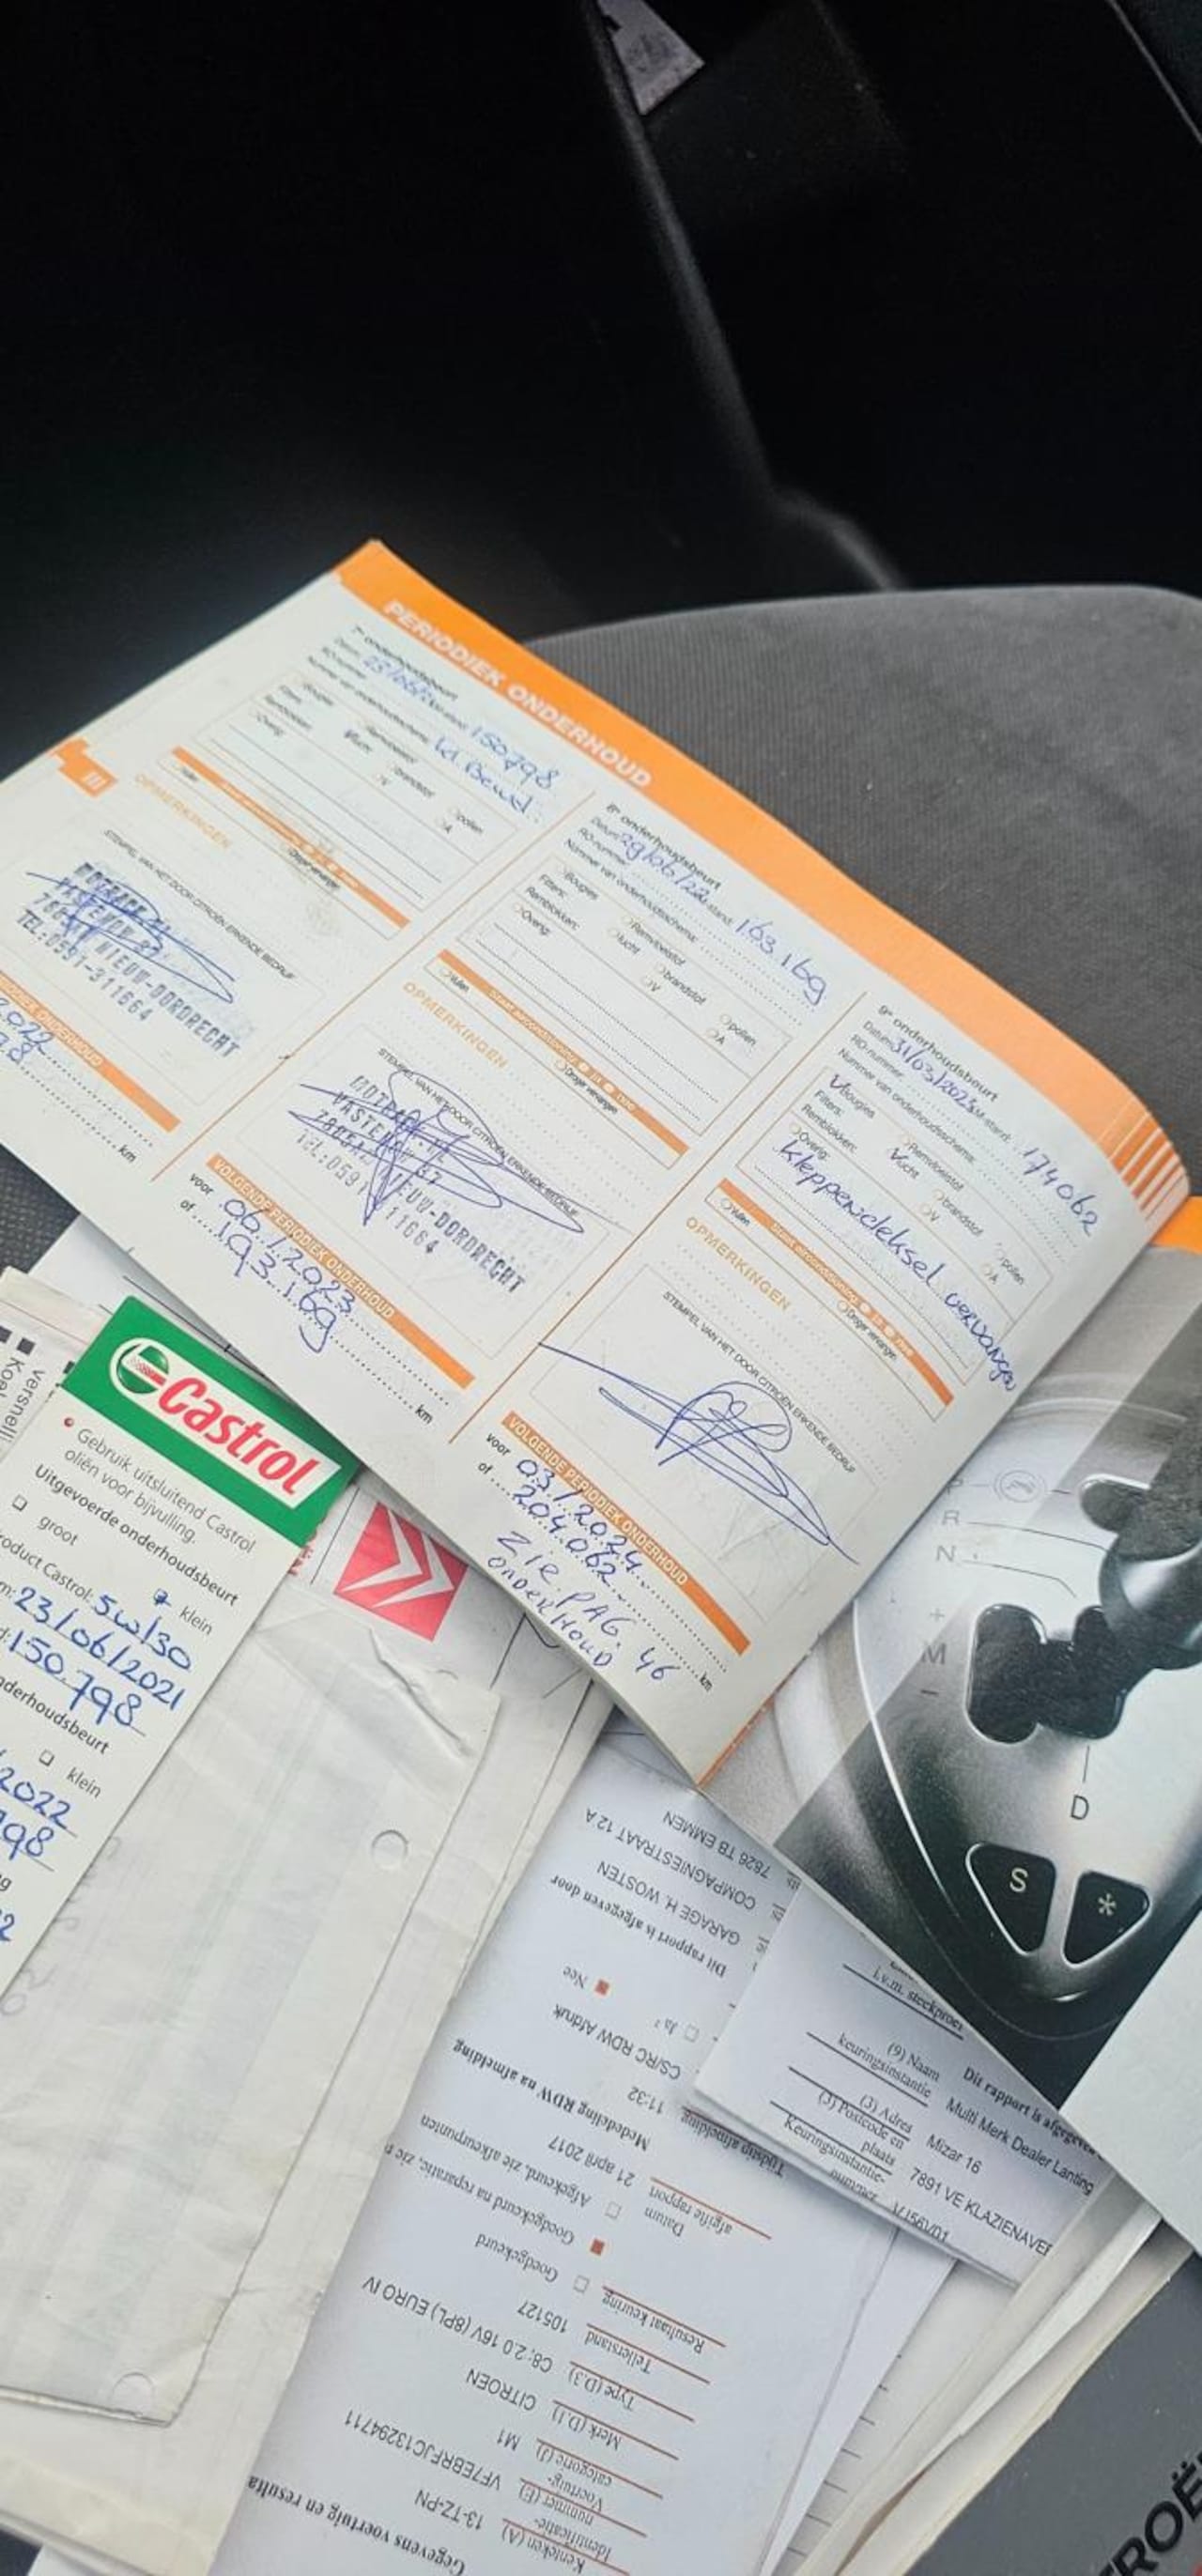 PERIODIEK ONDERHOUD
7e onderhoudsbeurt
Datum:
RO-nummer:
150798
Nummer van onderhoudsschema:
kl. Beurt.
Bougies
Remvloeistof
Filters:
lucht
brandstof
pollen
Remblokken:
V
A
Overig:
Vullen
Droger vervangen
10
OPMERKINGEN
STEMPEL VAN HET DOOR CITROËN ERKENDE BEDRIJF
NIEUW-DORDRECHT
TEL:0591-311664
km
8e onderhoudsbeurt
Datum: 29/06/22 stand: 163.169
RO-nummer:
Nummer van onderhoudsschema:
Bougies
Remvloeistof
Filters:
lucht
brandstof
pollen
Remblokken:
V
A
Overig:
Vullen
Droger vervangen
OPMERKINGEN
STEMPEL VAN HET DOOR CITROËN ERKENDE BEDRIJF
NIEUW-DORDRECHT
VOLGENDE PERIODIEK ONDERHOUD
voor 06/2023
of 193.169
km
9e onderhoudsbeurt
Datum: 31/03/2023 stand: 174062
RO-nummer:
Nummer van onderhoudsschema:
Bougies
Remvloeistof
Filters:
lucht
brandstof
pollen
Remblokken:
V
A
Overig:
Kleppendeksel vervangen
Vullen
Droger vervangen
OPMERKINGEN
STEMPEL VAN HET DOOR CITROËN ERKENDE BEDRIJF
VOLGENDE PERIODIEK ONDERHOUD
voor 03/2024
of 204.062
km
ZIE PAG. 46
ONDERHOUD
Castrol
Gebruik uitsluitend Castrol
oliën voor bijvulling.
Uitgevoerde onderhoudsbeurt
groot
klein
Product Castrol: 5w/30
23/06/2021
150.798
onderhoudsbeurt
klein
2022
R
N
+
M
-
D
S
*
i.v.m. steekproef
Dit rapport is afgegeven
(9) Naam
keuringsinstantie
Multi Merk Dealer Lanting
(3) Adres
Mizar 16
(3) Postcode en
plaats
7891 VE KLAZIENAVEE
Keuringsinstantie-
nummer
Gegevens voertuig en resulta
Kenteken (A)
13-TZ-PN
Identificatie-
nummer (E)
VF7EBRFJC13294711
Voertuig-
categorie (J)
M1
Merk (D.1)
CITROEN
Type (D.3)
C8; 2.0 16V (8PL) EURO IV
Tellerstand
105127
Resultaat keuring
Goedgekeurd
Goedgekeurd na reparatie, zie
Afgekeurd, zie afkeurpunten
Datum
afgifte rapport
21 april 2017
Tijdstip afmelding
11:32
Mededeling RDW na afmelding
CS/RC RDW Afdruk
Ja ?
Nee
Dit rapport is afgegeven door
GARAGE H. WOSTEN
COMPAGNIESTRAAT 12 A
7826 TB EMMEN
ROË